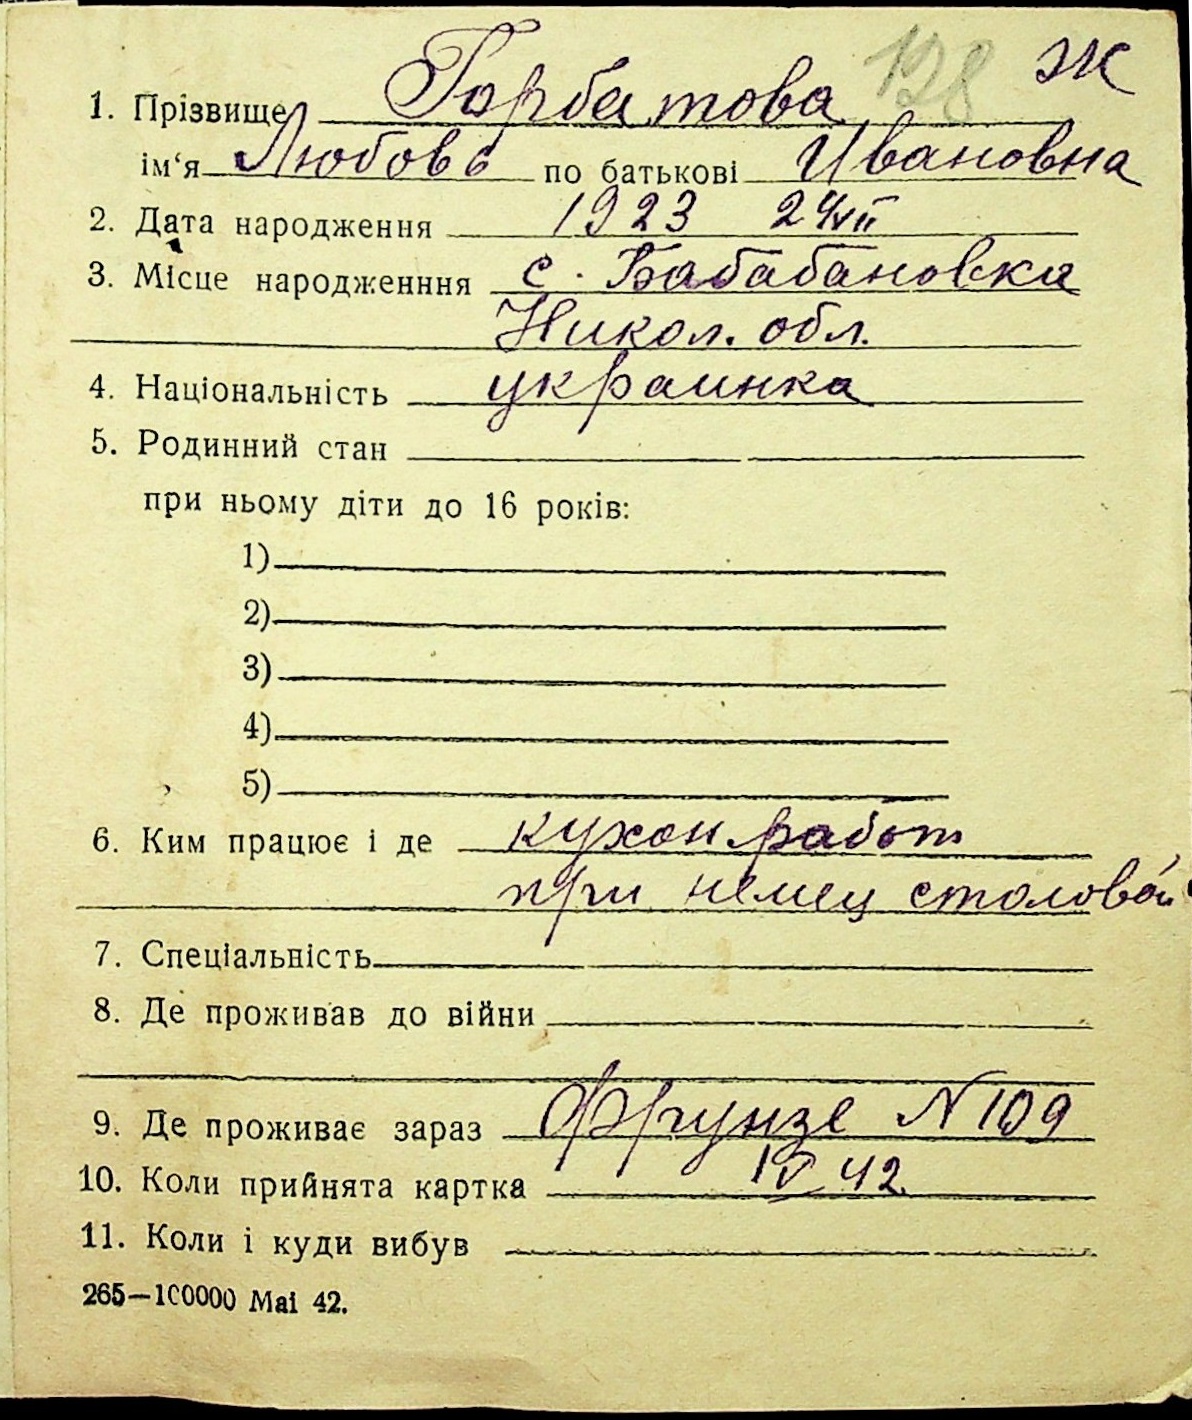 128 Ж
1. Прізвище Горбатова
ім‘я Любовь по батькові Ивановна
2. Дата народження 1923 24/VII
3. Місце народженння с. Бабабановка
Никол. обл.
4. Національність украинка
5. Родинний стан
при ньому діти до 16 років:
1)
2)
3)
4)
5)
6. Ким працює і де кухон работ
при немец столовой
7. Спеціальність
8. Де проживав до війни
9. Де проживає зараз Фрунзе N 109
10. Коли прийнята картка IV 42.
11. Коли і куди вибув
265—100000 Маі 42.